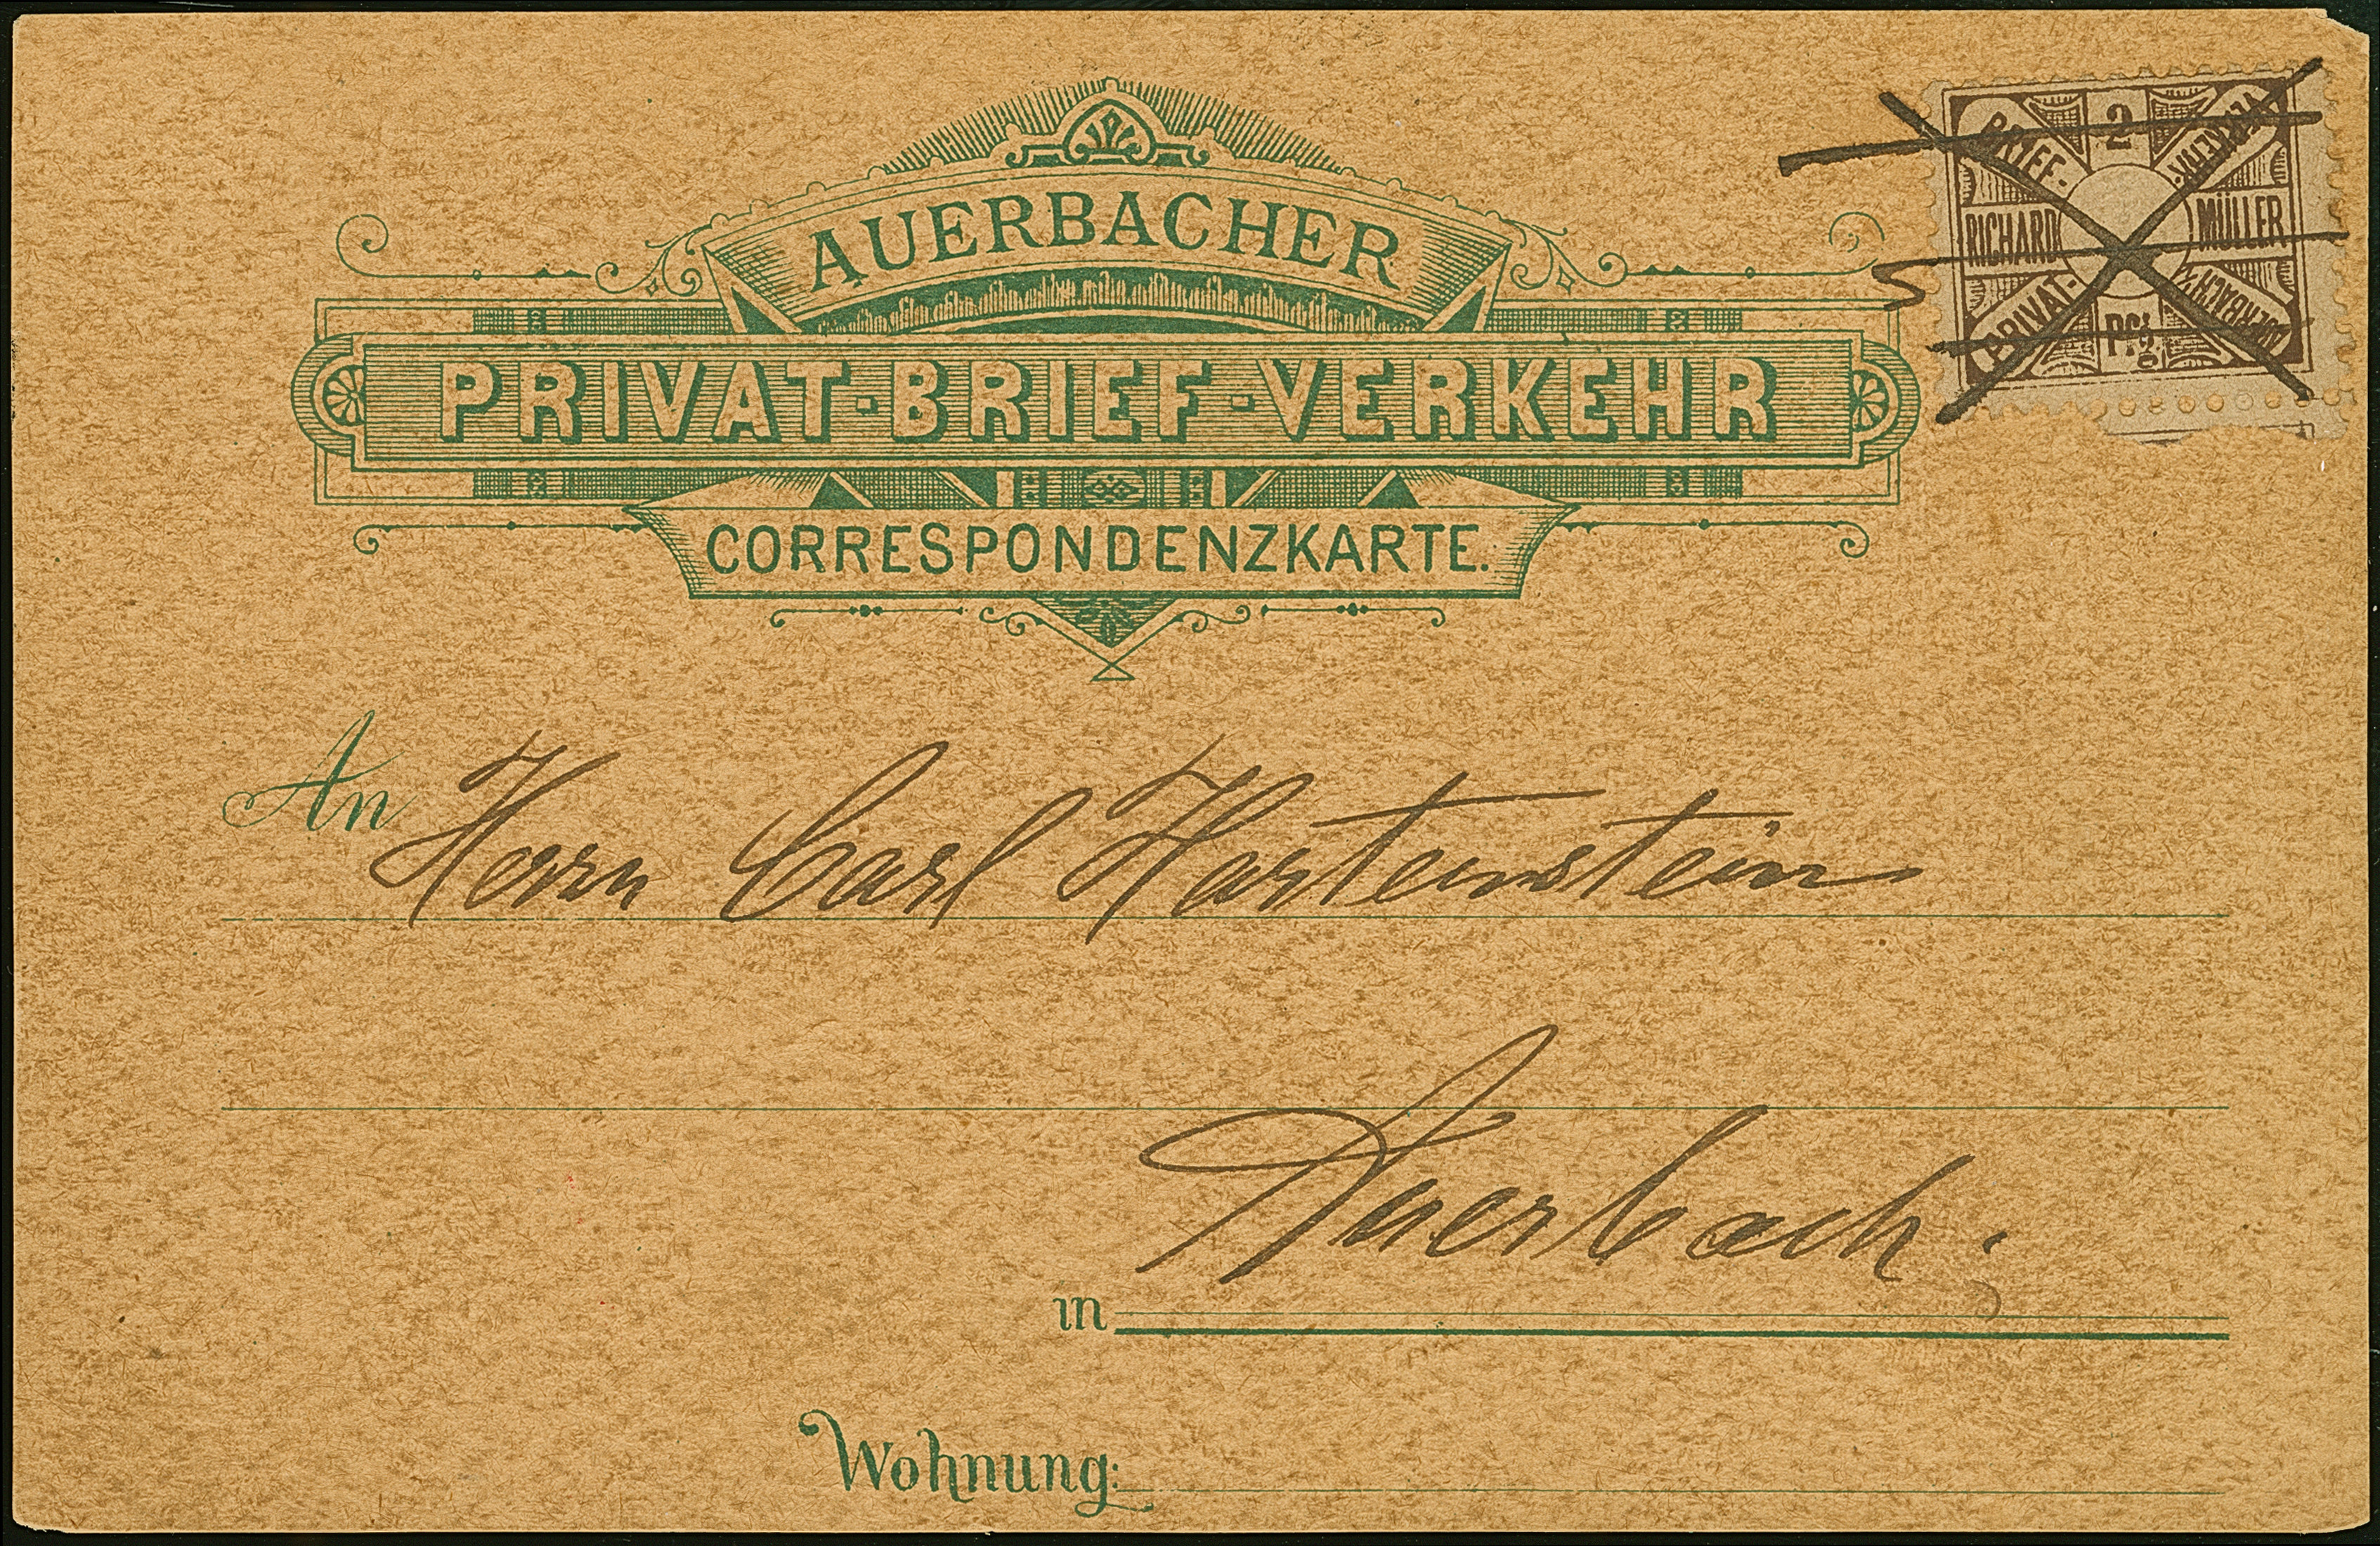 AUERBACHER
PRIVAT-BRIEF-VERKEHR
CORRESPONDENZKARTE.
BRIEF-
2
VERKEHR.
RICHARD
MÜLLER
PRIVAT-
Pfg
AUERBACH i/V
An Herrn Carl Hartenstein
Auerbach.
in
Wohnung: